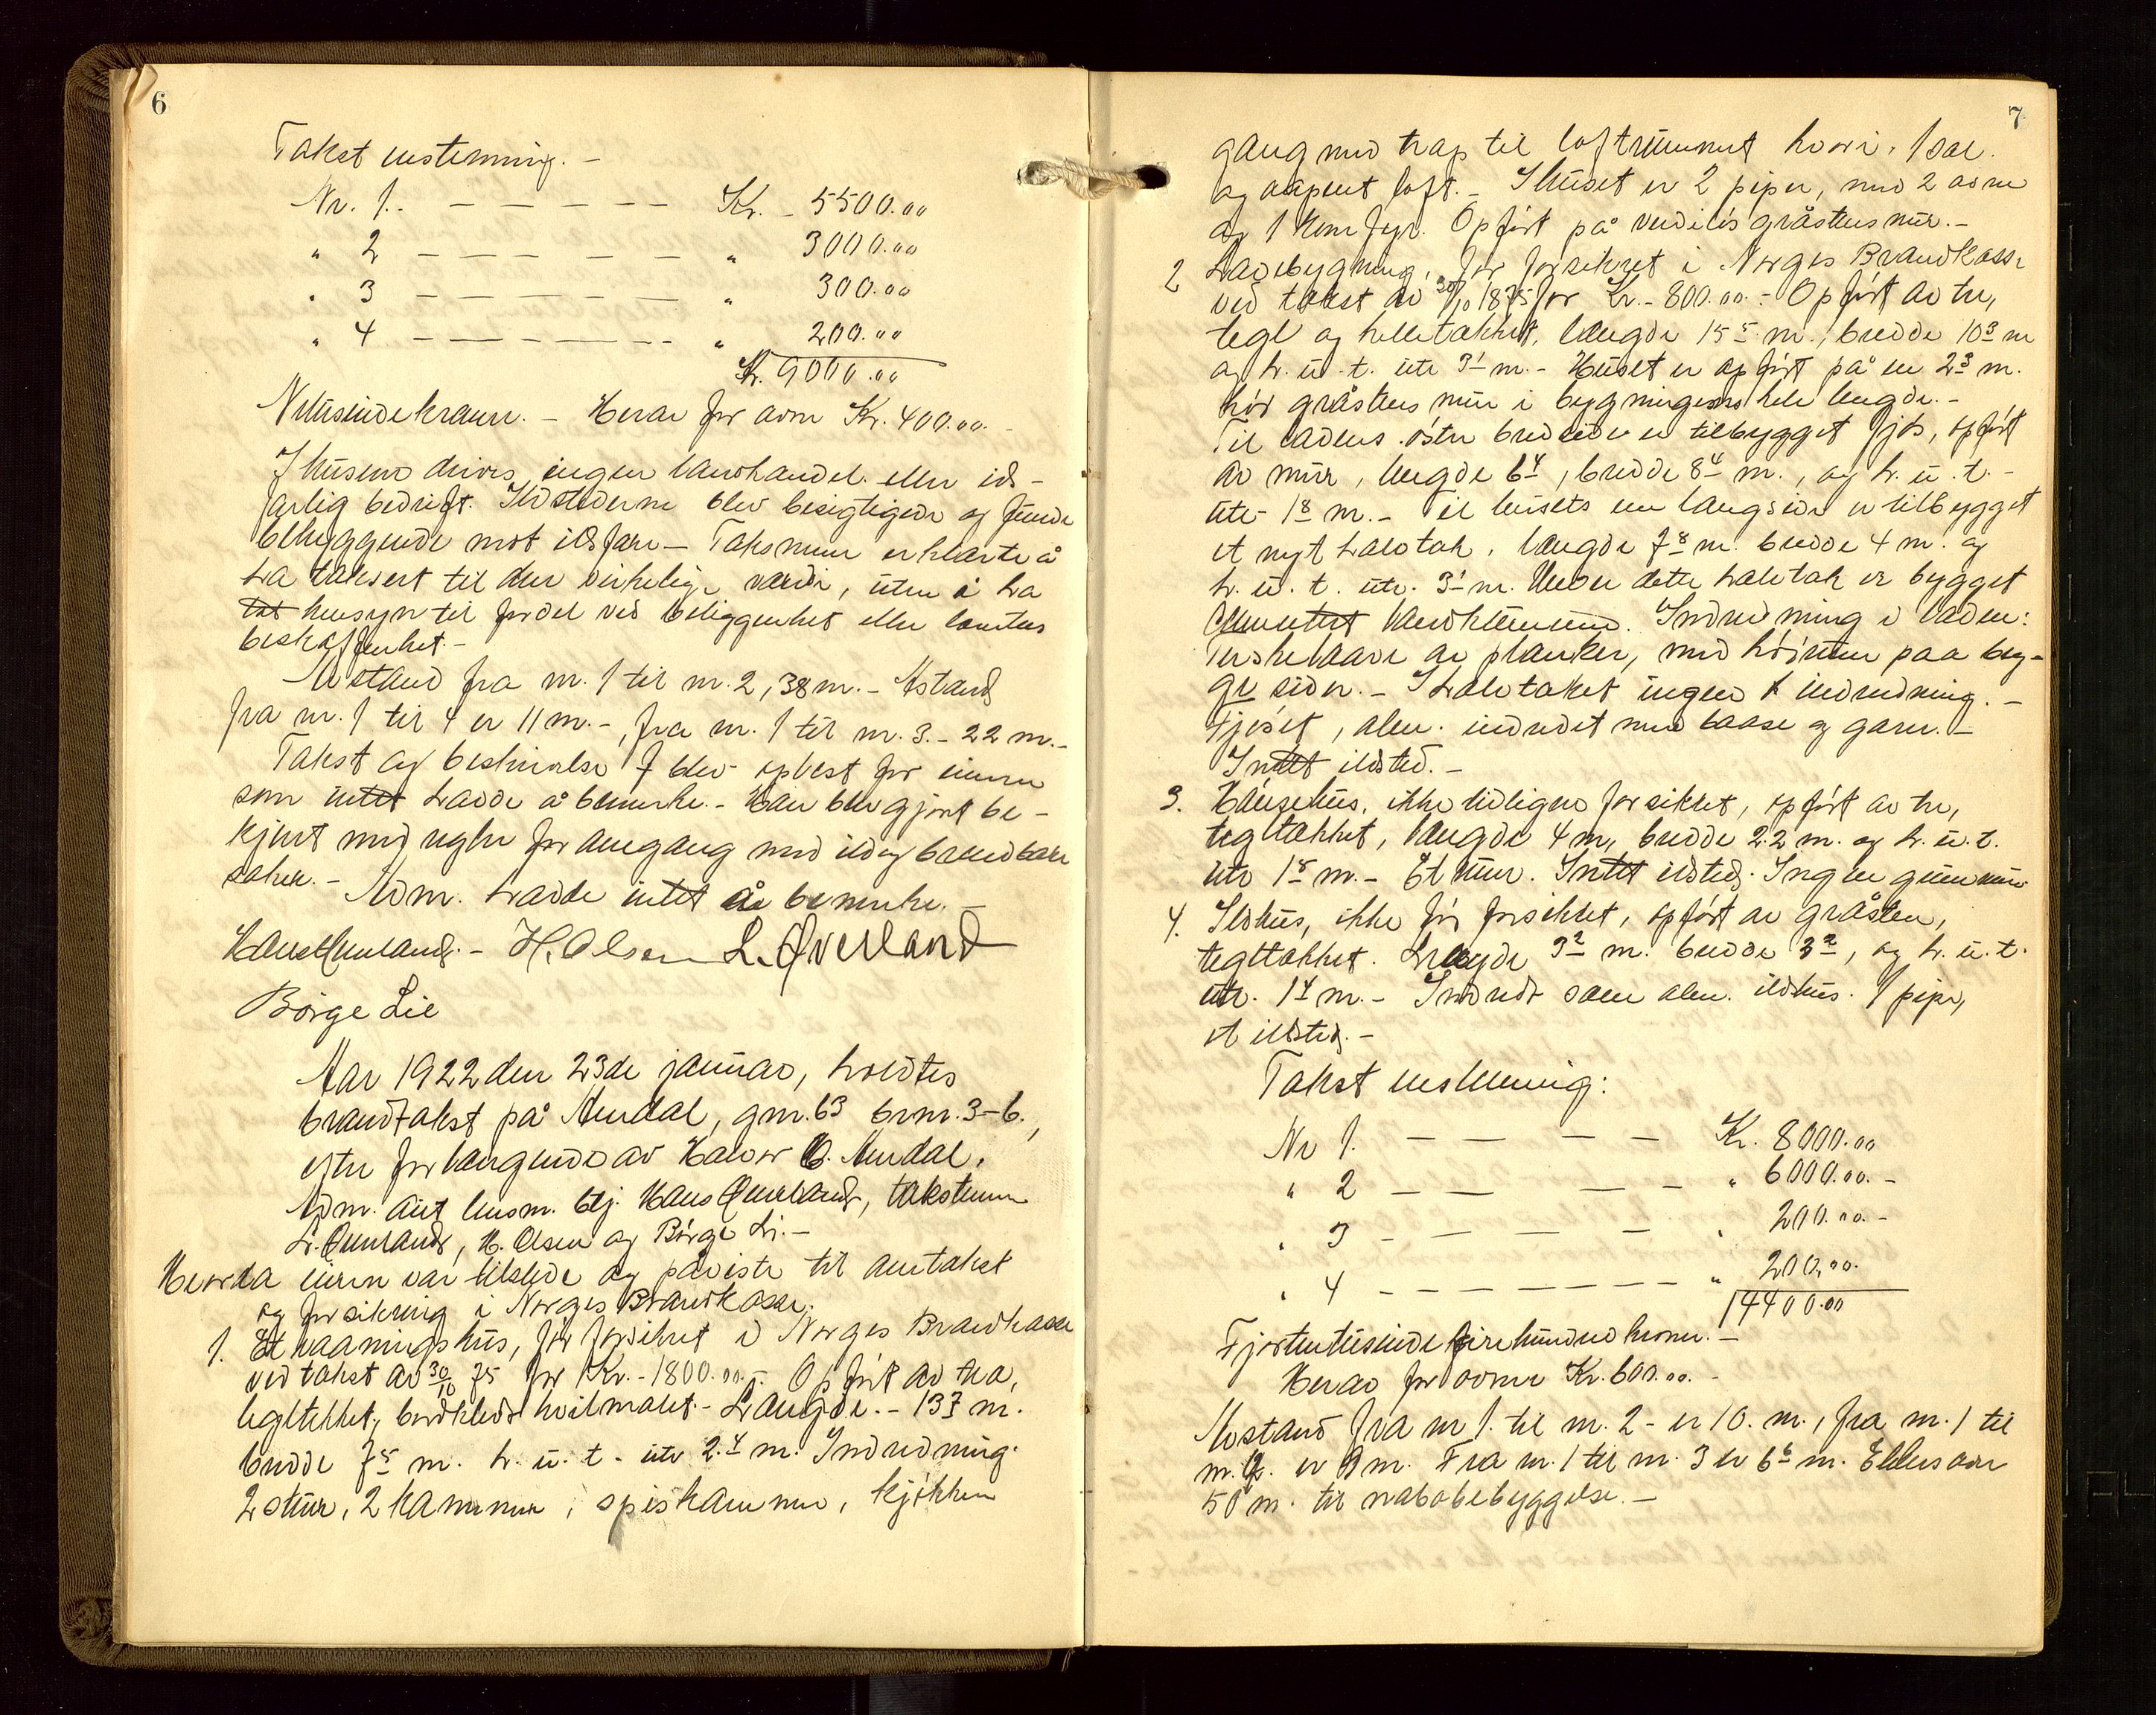 6
Takst bestemning. -
Nr. 1. - - - - - - Kr. - 5500.00
" 2 - - - - - - " 3000.00
" 3 - - - - - - " 300.00
" 4 - - - - - - - " 200.00
Kr. 9000.00
Nitusindekroner. - Herav for ovne Kr. 400.00. -
I husene drives ingen landhandel eller ids-
farlig bedrift. Ildstederne blev besigtigede og funde
betryggende mot ildsfare - Taksmenn erklærte å
ha taksert til den virkelige værdi, uten å ha
tat hensyn til fordel ved beliggenhet eller tomtens
beskaffenhet. -
Avstand fra nr. 1 til nr. 2, 38 m. - Avstand
fra nr. 1 til 4 er 11 m. -, fra nr. 1 til nr. 3. - 22 m. -
Takst og beskrivelse blev oplest for eieren
som intet hadde å bemerke. - Han blev gjort be-
kjent med regler for omgang med ild og brandbare
saker. -
Adm. hadde intet å bemerke. -
Hans Qverland. - H. Olsen L. Qverland
Börge Lie
Aar 1922 den 23de januar, holdtes
brandtakst på Aurdal, gnr. 63 brnr. 3-6.,
efter forlangende av Halvor O. Aurdal.
Adm. aut lensm. btj. Hans Qverland, takstmenn
L. Qverland, H. Olsen og Börge Li. -
Hvorda eieren var tilstede og påviste til omtakst
og forsikring i Norges Brandkasse.
1. Et vaaningshus, før forsikret i Norges Brandkasse
ved takst av 30/10 75 for Kr. - 1800.00. - Opført av tre,
tegltekket, bordkledt hvitmalet. - Længde. - 13 m.
bredde 7 5 m. h. u. t. utv 2. 4 m. Indredning.
2 stuer, 2 kammer, spiskammer, kjøkken
7
gang med trap til loftrummet hvori 1 sal.
og aapent loft. - I huset er 2 piper, med 2 ovne
og 1 komfyr. Opført på verdiløs gråstensmur. -
2 Ladebygning, før forsikret i Norges Brandkasse
ved takst av 30/10 1875 for Kr. - 800.00. - Opført av tre,
tegl og helletækket, længde 15 5 m., bredde 10 3 m
og h. u. t. utv 3 1 m. - Huset er opført på en 2 3 m.
høi gråstens mur i bygningens hele lengde. -
Til ladens østre bredside er tilbygget fjøs, opført
av mur, lengde 6 4, bredde 8 4 m., og h. u. t. -
utv 1 8 m. - Til husets ene langside er tilbygget
et nyt halvtak. længde 7 8 m. bredde 4 m. og
h. u. t. utv. 3 1 m. Under dette halvtak er bygget
cementert landkum. Indredning i laden:
Treskelaave av planker, med høirum paa beg-
ge sider. - I halvtaket ingen indredning. -
Fjøset, alm. indredet med baase og garer. -
Intet ildsted. -
3. Hønsehus, ikke tidligere forsikret, opført av tre,
tegltækket, længde 4 m, bredde 2.2 m. og h. u. t.
utv 1 8 m. - Et rum. Intet ildsted. Ingen grunnmur
4. Ildhus, ikke før forsikret, opført av gråsten,
tegltækket. Længde 3 2 m. bredde 3 2, og h. u. t.
utv. 1 4 m. - Indredt som alm. ildhus. 1 pipe,
et ildsted. -
Takst bestemning:
Nr 1. - - - - Kr. 8000.00
" 2 - - - - " 6000.00. -
" 3 - - - - " 200.00. -
" 4 - - - - - - " 200.00.
14400.00
Fjortentusindefirehundred kroner. -
Herav for ovner Kr. 600.00. -
Avstand fra nr 1. til nr. 2 - er 10. m., fra nr. 1 til
nr. 4. er 9 m. Fra nr. 1 til nr. 3 er 6 6 m. Ellers over
50 m. til nabobebyggelse. -